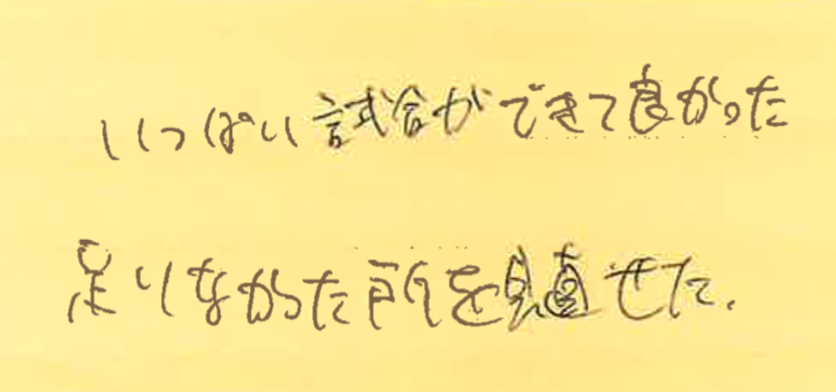 いっぱい試合ができて良かった
足りなかった所を見直せた.